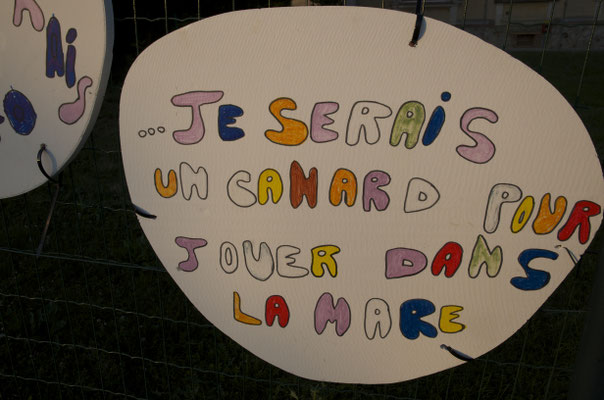 ...JE SERAIS
UN CANARD POUR
JOUER DANS
LA MARE